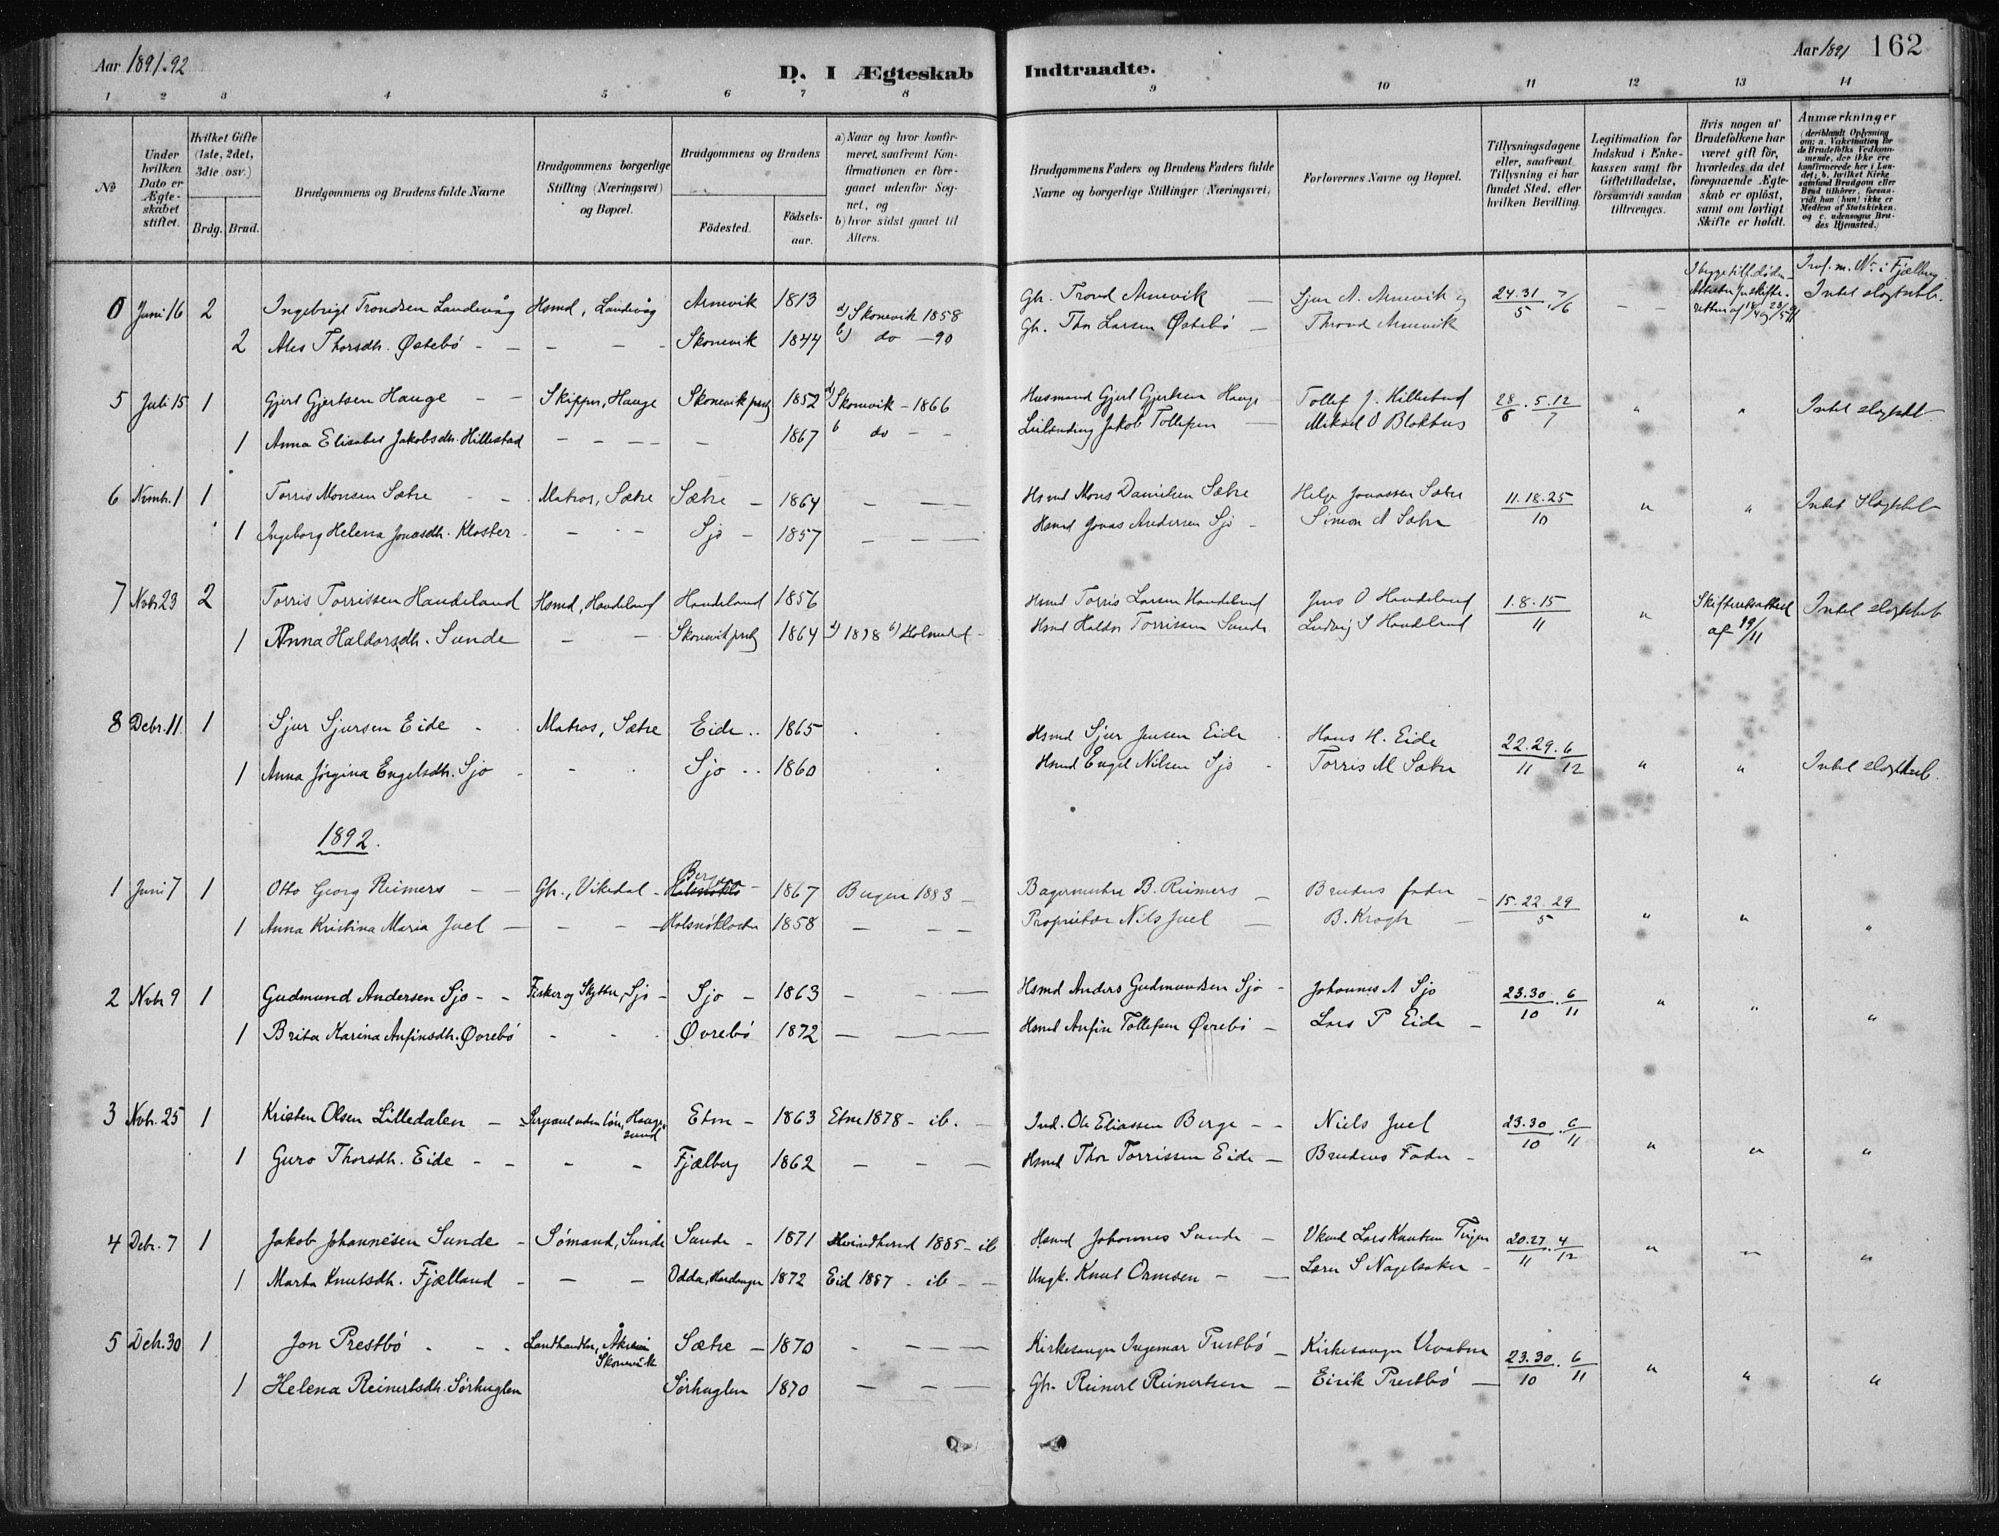 Aar 1891.92
D. I Ægteskab Indtraadte.
Aar 1891 162
1 2 3 4 5 6 7 8 9 10 11 12 13 14
No
Under hvilken Dato er Ægteskabet stiftet.
Hvilket Gifte (1ste, 2det, 3die osv.)
Brdg. Brud.
Brudgommens og Brudens fulde Navne
Brudgommens borgerlige Stilling (Næringsvei) og Bopæl.
Brudgommens og Brudens
Födested. Födselsaar.
a) Naar og hvor konfirmeret, saafremt Konfirmationen er foregaaet udenfor Sognet, og
b) hvor sidst gaaet til Alters.
Brudgommens Faders og Brudens Faders fulde Navne og borgerlige Stillinger (Næringsvei)
Forlovernes Navne og Bopæl.
Tillysningsdagene eller, saafremt Tillysning ei har fundet Sted, efter hvilken Bevilling.
Legitimation for Indskud i Enkekassen samt for Giftetilladelse, forsaavidt saadan tiltrænges.
Hvis nogen af Brudefolkene har været gift för, hvorledes da det foregaaende Ægteskab er oplöst, samt om lovligt Skifte er holdt.
Anmærkninger (deriblandt Oplysning om: a. Vaksination for de Brudefolks Vedkommende, der ikke ere konfirmerede her i Landet; b. hvilket Kirkesamfund Brudgom eller Brud tilhörer, forsaavidt han (hun) ikke er Medlem af Statskirken, og c. udensogns Brudes Hjemsted.)
0 Juni 16 2 Ingebrigt Trondsen Landevåg Hsmd, Landevåg Arnevik 1813 a) Skonevik 1858 Gb. Trond Arnevik — Sjur A. Arnevik og 24.31/5 . 7/6 — Intet slægtskb.
2 Ales Thorsdh. Østebö - — — — Skonevik 1844 b) do — 90 Gb. Thor Larsen Østebö — Throud Arnevik
5 Juli 15 1 Gjert Gjertsen Hauge - — Skipper, Hauge Skonevik prstg 1852 a) Skonevik — 1866 Husmand Gjert Gjertsen Hauge Tollef J. Hillestad 28/6 . 5.12/7 " " Intet slægtskb
1 Anna Elisabet Jakobsdh. Hillestad - — — — — 1867 b do — - Leilænding Jakob Tollefsen — Mikael O Blokhus
6 Nvmbr. 1 1 Torris Monsen Sætre - - Matros, Sætre Sætre — 1864 — — — Hsmd Mons Danielsen Sætre Helge Jonassen Sætre 11.18.25/10 " " Intet Slægtskb
1 Ingeborg Helena Jonasdh. Kloster - — - — Sjo — 1857 — — — Hsmd Jonas Andersen Sjo - Simon A Sætre
7 Nvbr 23 2 Torris Torrissen Handeland Hsmd, Handeland Handeland 1856 Hsmd Torris Larsen Handeland Jens O Handeland 1.8.15/11 " Skifteretsattest af 19/11 Intet slægtskb
1 Anna Haldorsdh. Sunde — — Skonevik prstg 1864 a) 1878 b) Holmedal - Hsmd Haldor Torrissen Sunde Ludvig S Handeland
8 Debr. 11 1 Sjur Sjursen Eide - . Matros, Sætre Eide .. 1865 . . Hsmd Sjur Jensen Eide . Hans H. Eide 22.29/11 . 6/12 " " Intet slægtskb.
1 Anna Jörgina Engelsdh. Sjo - - - - Sjo .. 1860 . . Hsmd Engel Nilsen Sjo . Torris M Sætre
1892.
1 Juni 7 1 Otto Georg Reimers — — Gb., Vikedal - Bergen 1867 Bergen 1883 — Bagermester B. Reimers — Brudens fader - 15.22.29/5 " " "
1 Anna Kristina Maria Juel — — - — Halsnökloster 1858 — — — Proprietær Nils Juel — B. Krogh —
2 Nvbr 9 1 Gudmund Andersen Sjo - - Fisker og Skytter, Sjo - Sjo — 1863 — - — Hsmd Anders Gudmundsen Sjo - Johannes A Sjo 23.30/10 . 6/11 " " "
1 Brita Karina Anfinsdh. Øvrebö - - - Øvrebö 1872 — — — Hsmd Anfin Tollefsen Øvrebö — Lars P Eide —
3 Nvbr. 25 1 Kristen Olsen Lilledalen — Sergeant uden lön, Haugesund Etne — 1863 Etne 1878 - ib. - — Ind. Ole Eliassen Berge - - Niels Juel 23.30/10 . 6/11 " " "
1 Guro Thorsdh. Eide - - - — Fjælberg 1862 — - — Hsmd Thor Torrissen Eide — Brudens Fader -
4 Debr. 7 1 Jakob Johannesen Sunde - Sömand, Sunde Sunde - 1871 Kvindherred 1885 - ib Hsmd Johannes Sunde — Lars Knutsen 20.27/11 . 4/12 " " "
1 Marta Knutsdh. Fjælland - — — Odda, Hardanger 1872 Eid 1887 - ib - — Ungk. Knut Ormsen - — Lærer S Nagelsaker -
5 Debr. 30 1 Jon Prestbö - - - Landhandler, Åkre i Skonevik Sætre — 1870 - — — — Kirkesanger Ingemar Prestbö — Kirkesanger 23.30/10 . 6/11 " " "
1 Helena Reinertsdh. Sörhuglen Sörhuglen 1870 — — — Gb. Reinert Reinertsen — Eirik Prestbö —